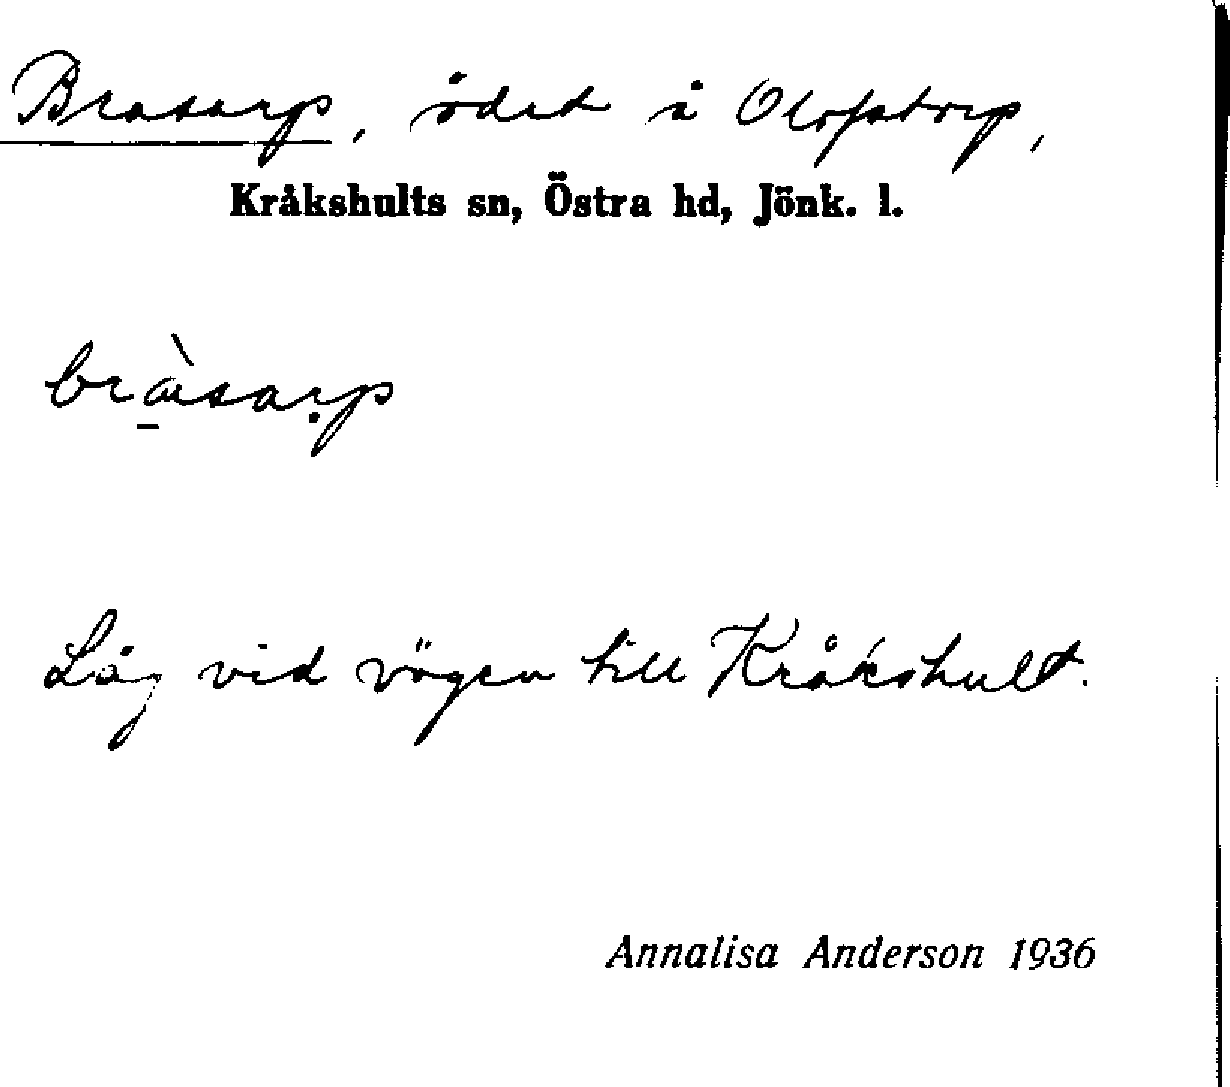 Brasarp, ödet i Olofstorp,
Kråkshults sn, Östra hd, Jönk. l.
brà̱sarp̣
Låg vid vägen till Kråkshult.
Annalisa Anderson 1936